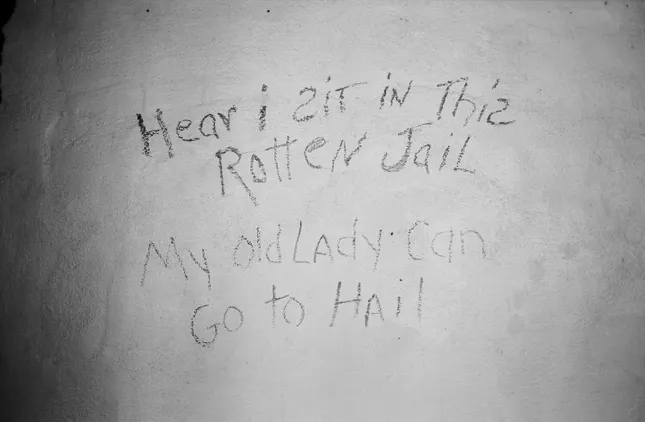 Hear i zit in Thiz
Rotten Jail
My old Lady Can
Go to Hail